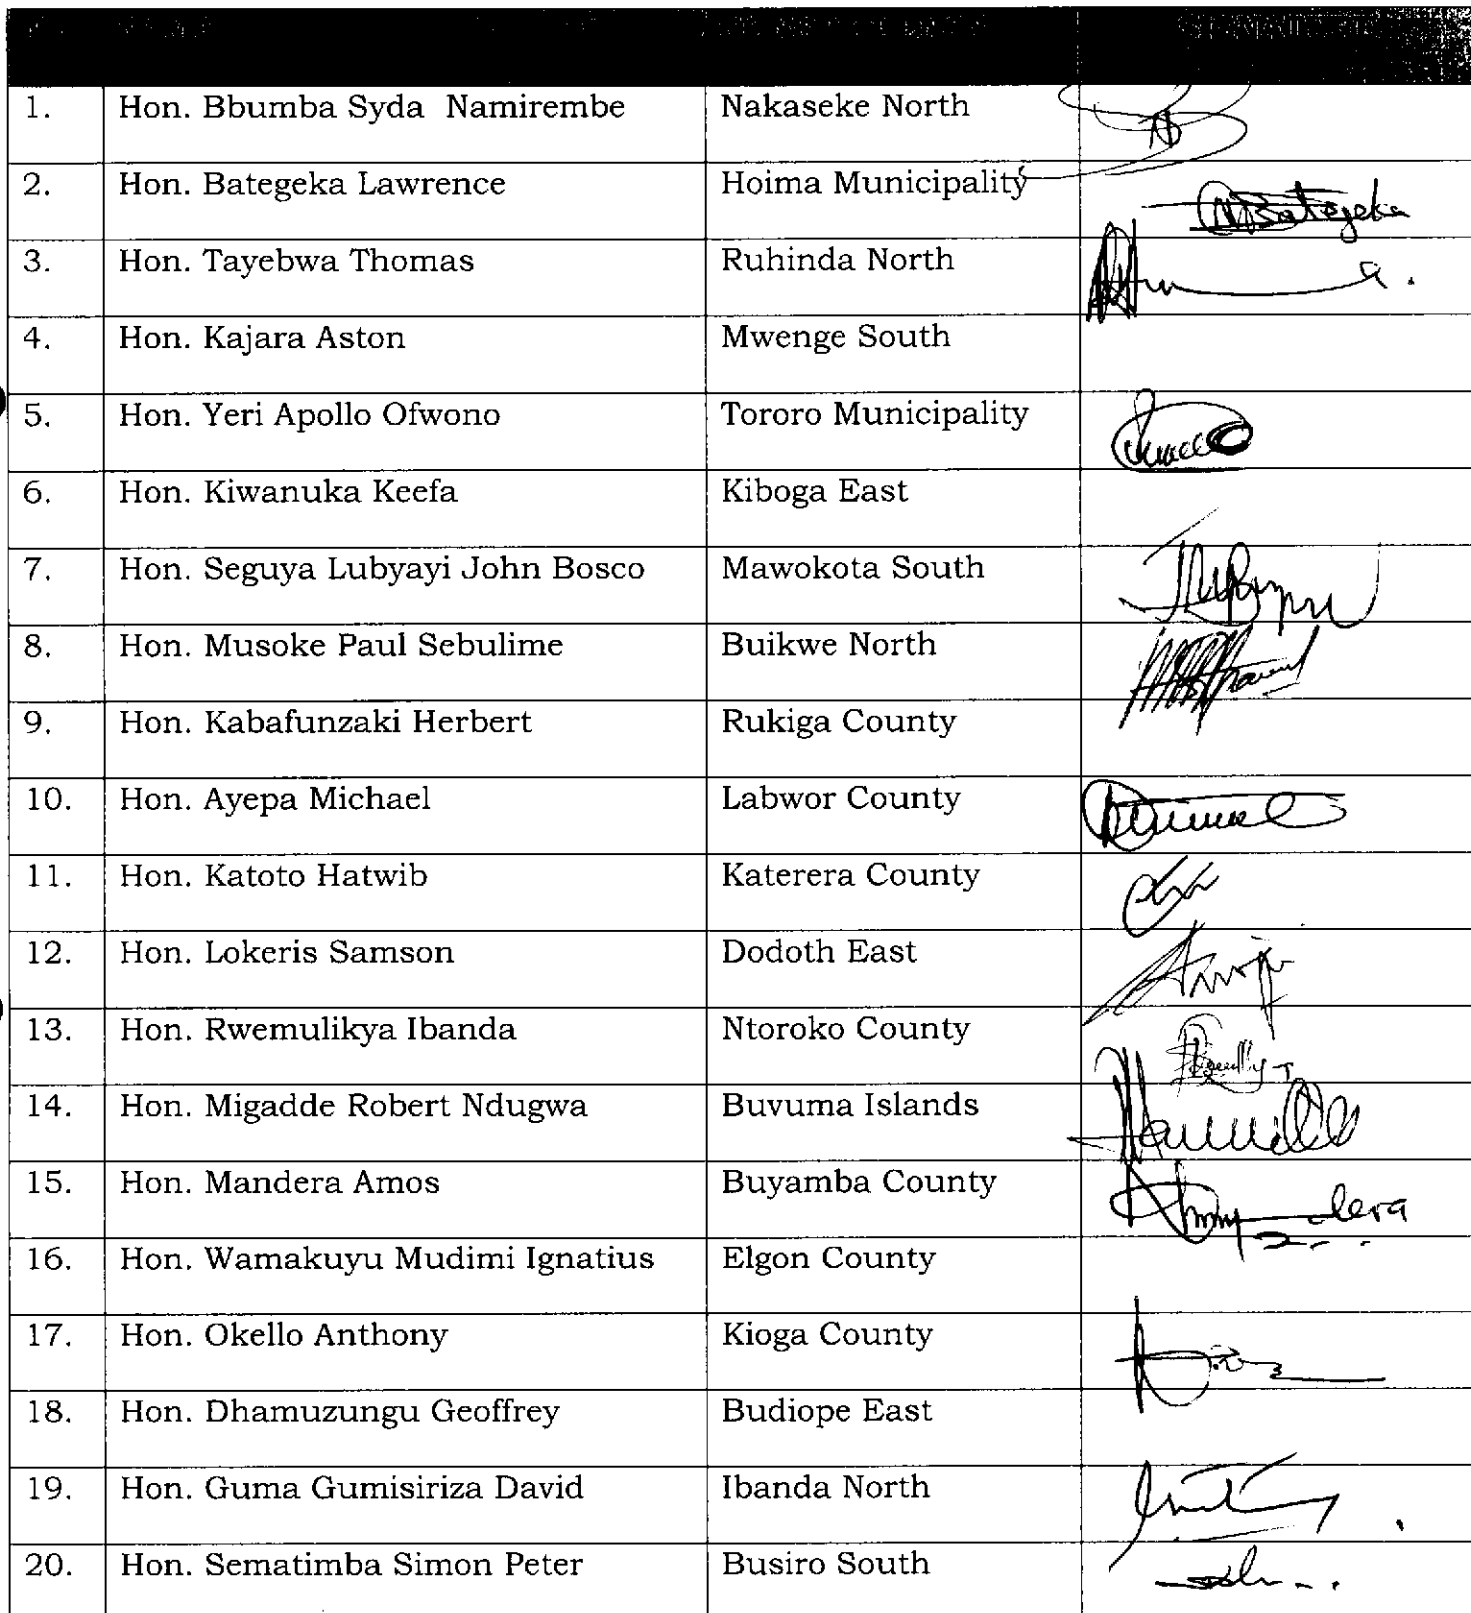 1. Hon. Bbumba Syda Namirembe Nakaseke North
2. Hon. Bategeka Lawrence Hoima Municipality
3. Hon. Tayebwa Thomas Ruhinda North
4. Hon. Kajara Aston Mwenge South
5. Hon. Yeri Apollo Ofwono Tororo Municipality
6. Hon. Kiwanuka Keefa Kiboga East
7. Hon. Seguya Lubyayi John Bosco Mawokota South
8. Hon. Musoke Paul Sebulime Buikwe North
9. Hon. Kabafunzaki Herbert Rukiga County
10. Hon. Ayepa Michael Labwor County
11. Hon. Katoto Hatwib Katerera County
12. Hon. Lokeris Samson Dodoth East
13. Hon. Rwemulikya Ibanda Ntoroko County
14. Hon. Migadde Robert Ndugwa Buvuma Islands
15. Hon. Mandera Amos Buyamba County
16. Hon. Wamakuyu Mudimi Ignatius Elgon County
17. Hon. Okello Anthony Kioga County
18. Hon. Dhamuzungu Geoffrey Budiope East
19. Hon. Guma Gumisiriza David Ibanda North
20. Hon. Sematimba Simon Peter Busiro South